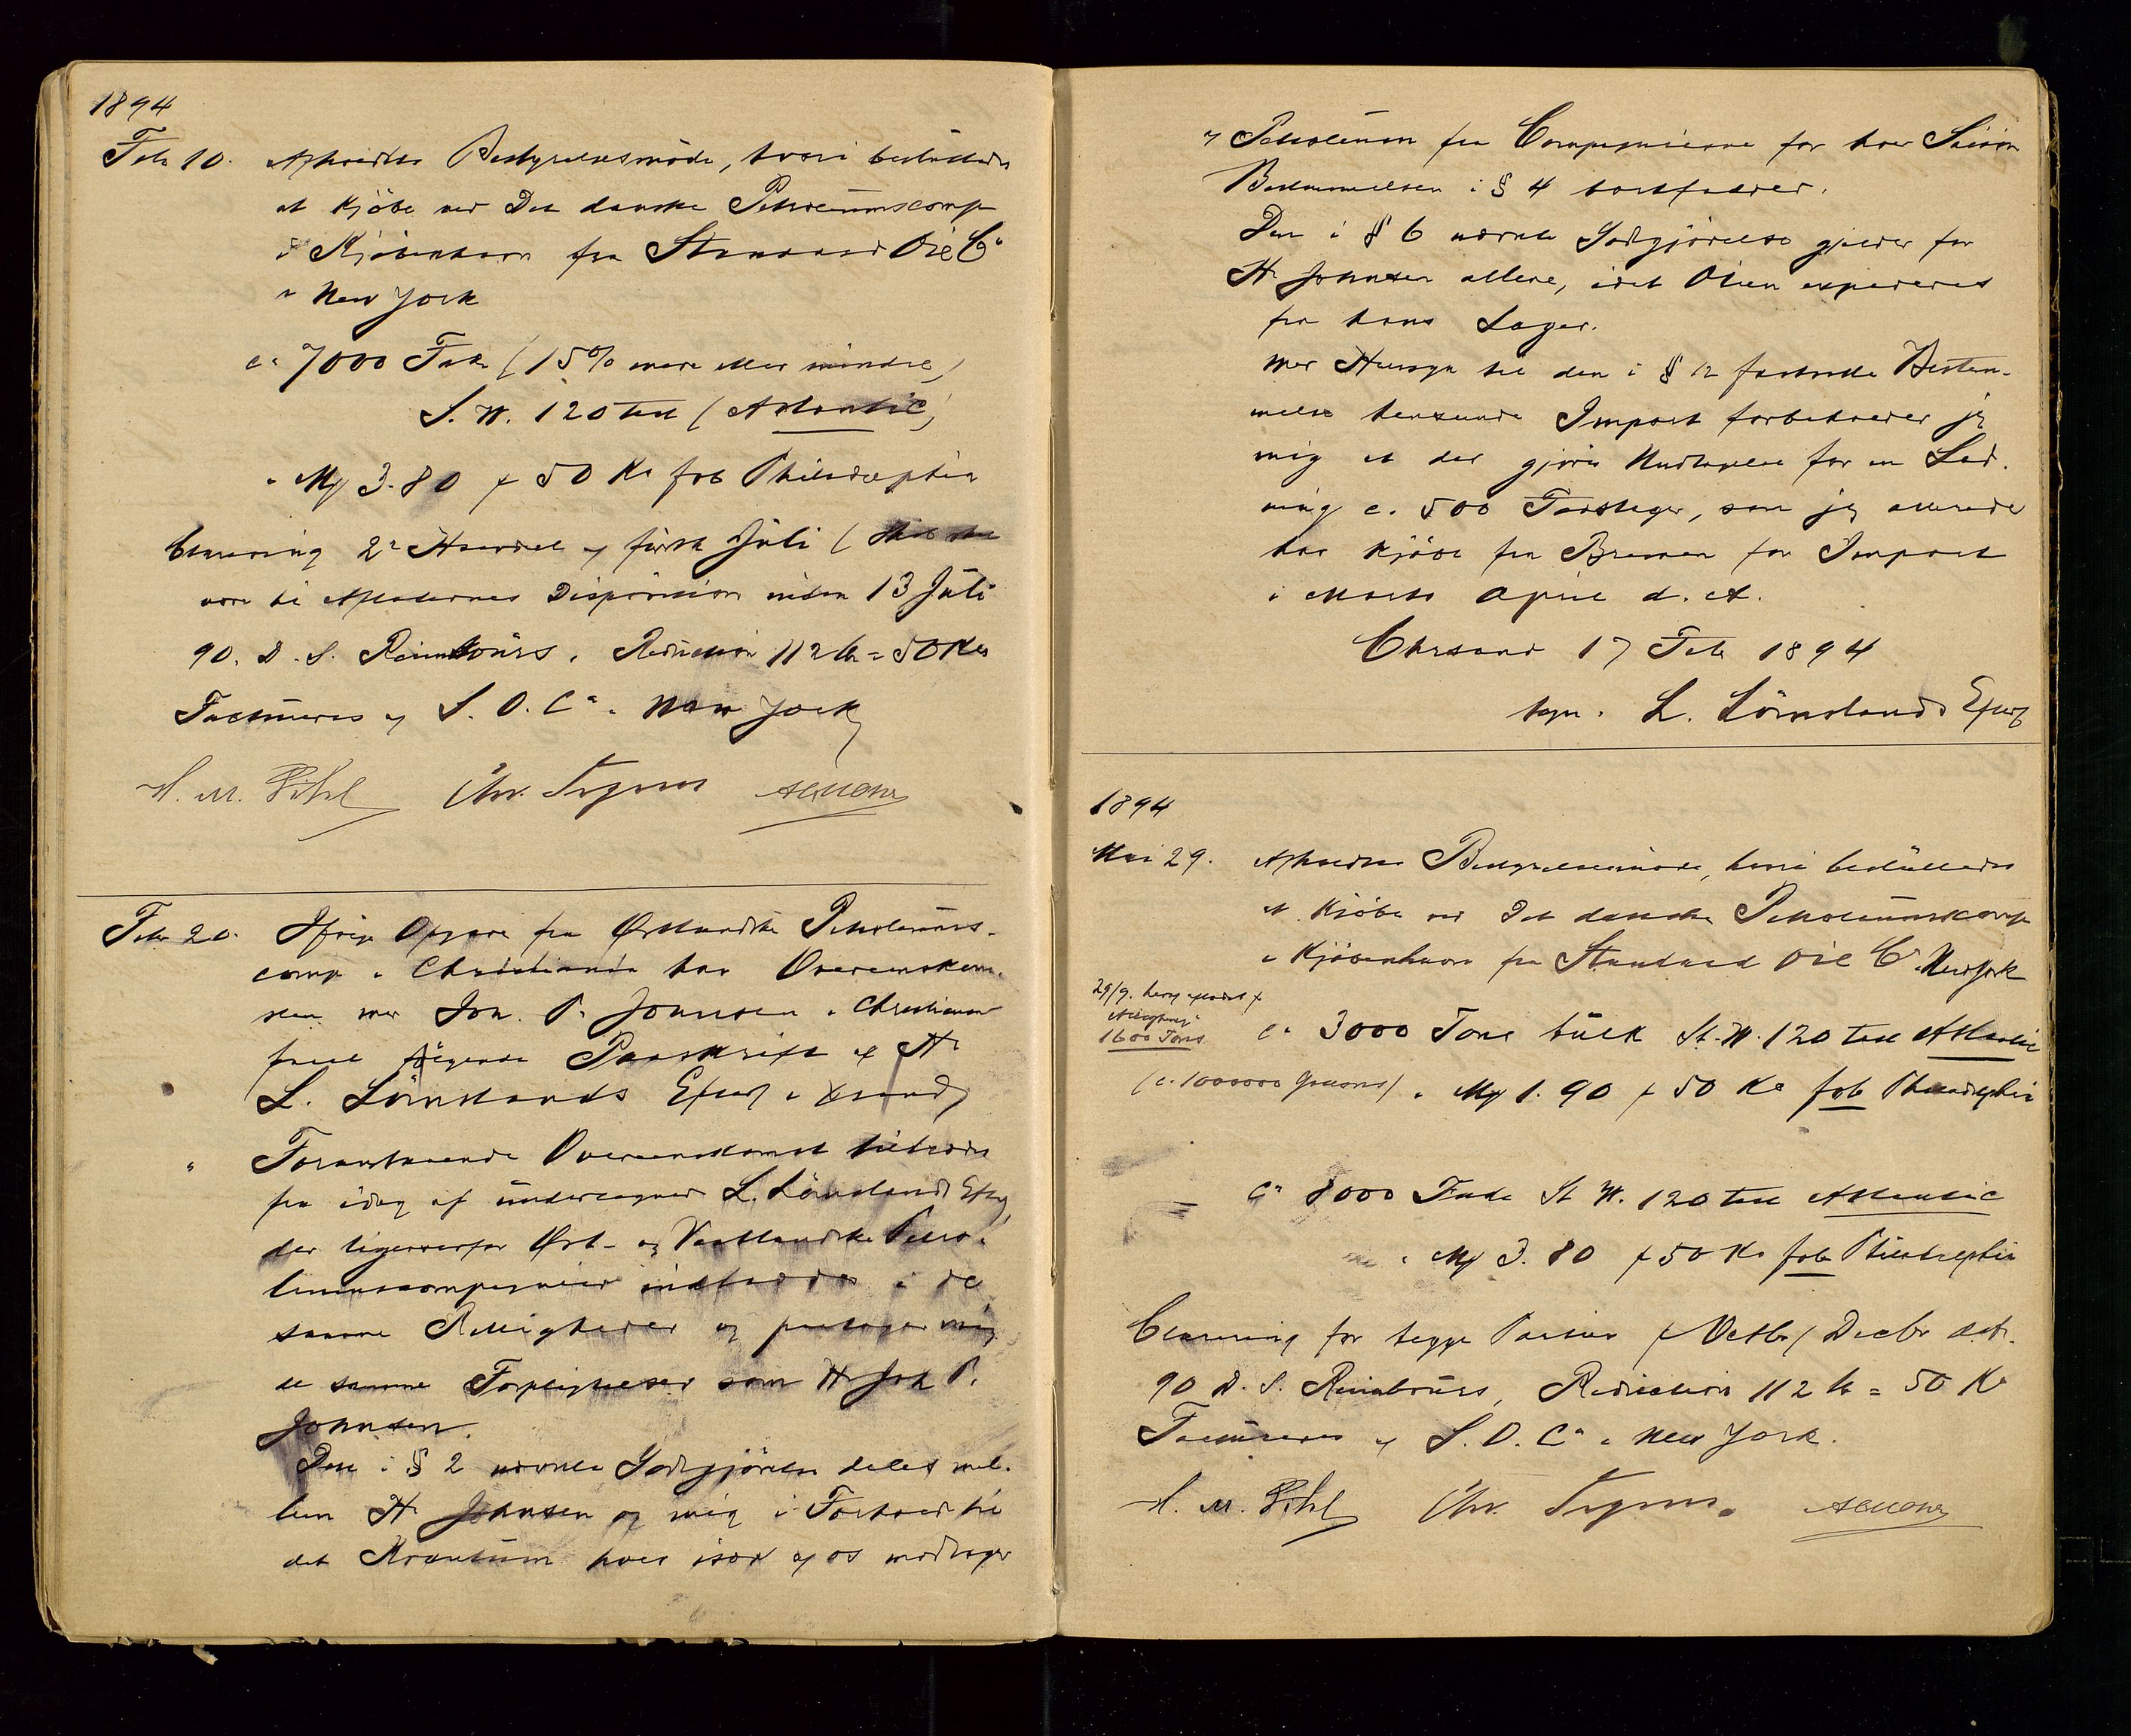 1894
Feb 10. Afholdtes Bestyrelsesmöde, hvori besluttedes
at Kjöbe ved Det danske Petroleumscomp
i Kjöbenhavn fra Standard Oil Cº
i New York
cª 7000 Fade (15% mere eller mindre)
S. W. 120 test (Atlantic)
a Mk 3.80 pr 50 Ko fob Philadelphia
Clarering 2n Halvdel af förste Juli (
være til Afladernes Disposition inden 13 Juli
90. D. S. Reimbours. Reduction 112 lb = 50 Ko
Factureres af S. O. Cº i New York
H. M. Pihl Chr.
Feb 20. Ifölge Opgave fra Östlandske Petroleums-
comp i Christiania har Overenskom-
sten med Joh. P. Johnsen i Christiania
faaet fölgende Paaskrift af Hr
L. Lömslands Eftflg i Xsand
" Foranstaaende Overenskomst tiltrædes
fra idag af undertegnede L. Lömslands Eftflg,
der ligeoverfor Öst- og Vestlandske Petro-
leumscompagnier indtræder i de
samme Rettigheder og paatager mig
de samme Forpligtelser som Hr Joh P.
Johnsen.
Den i § 2 nævnte Godtgjörelse deles mel-
lem Hr Johnsen og mig i Forhold til
det Kvantum hver især af os modtager
af Petroleum fra Compagnierne for hver Saison
Bestemmelsen i § 4 bortfalder.
Den i § 6 nævnte Godtgjörelse gjælder for
Hr Johnsen allene, idet Olien expederes
fra hans Lager.
Med Hensyn til den i § 12 fastsatte Bestem-
melse angaaende Import forbeholder jeg
mig at der gjöres Undtagelse for en Lad-
ning c. 500 Fastager, som jeg allerede
har kjöbt fra Bremen for Import
i Marts April d. A.
Chrsand 17 Feb 1894
sign. L. Lömslands Eftflg
1894
Mai 29. Afholdtes Bestyrelsesmöde, hvori besluttedes
at Kjöbe ved Det danske Petroleumscomp
i Kjöbenhavn fra Standard Oil Cº New York
29/9. herof afladet pr
1600 Tons
cª 3000 Tons bulk St. W. 120 test Atlantic
(c. 1000000 Gallons) a Mk 1.90 pr 50 Ko fob Philadelphia
cª 8000 Fade St W. 120 test Atlantic
a Mk 3.80 pr 50 Ko fob Philadelphia
Clarering for begge Partier pr Octbr / Decbr
90 D. S. Reimbours, Reduction 112 lb = 50 Ko
Factureres af S. O. Cº i New York.
H. M. Pihl Chr.